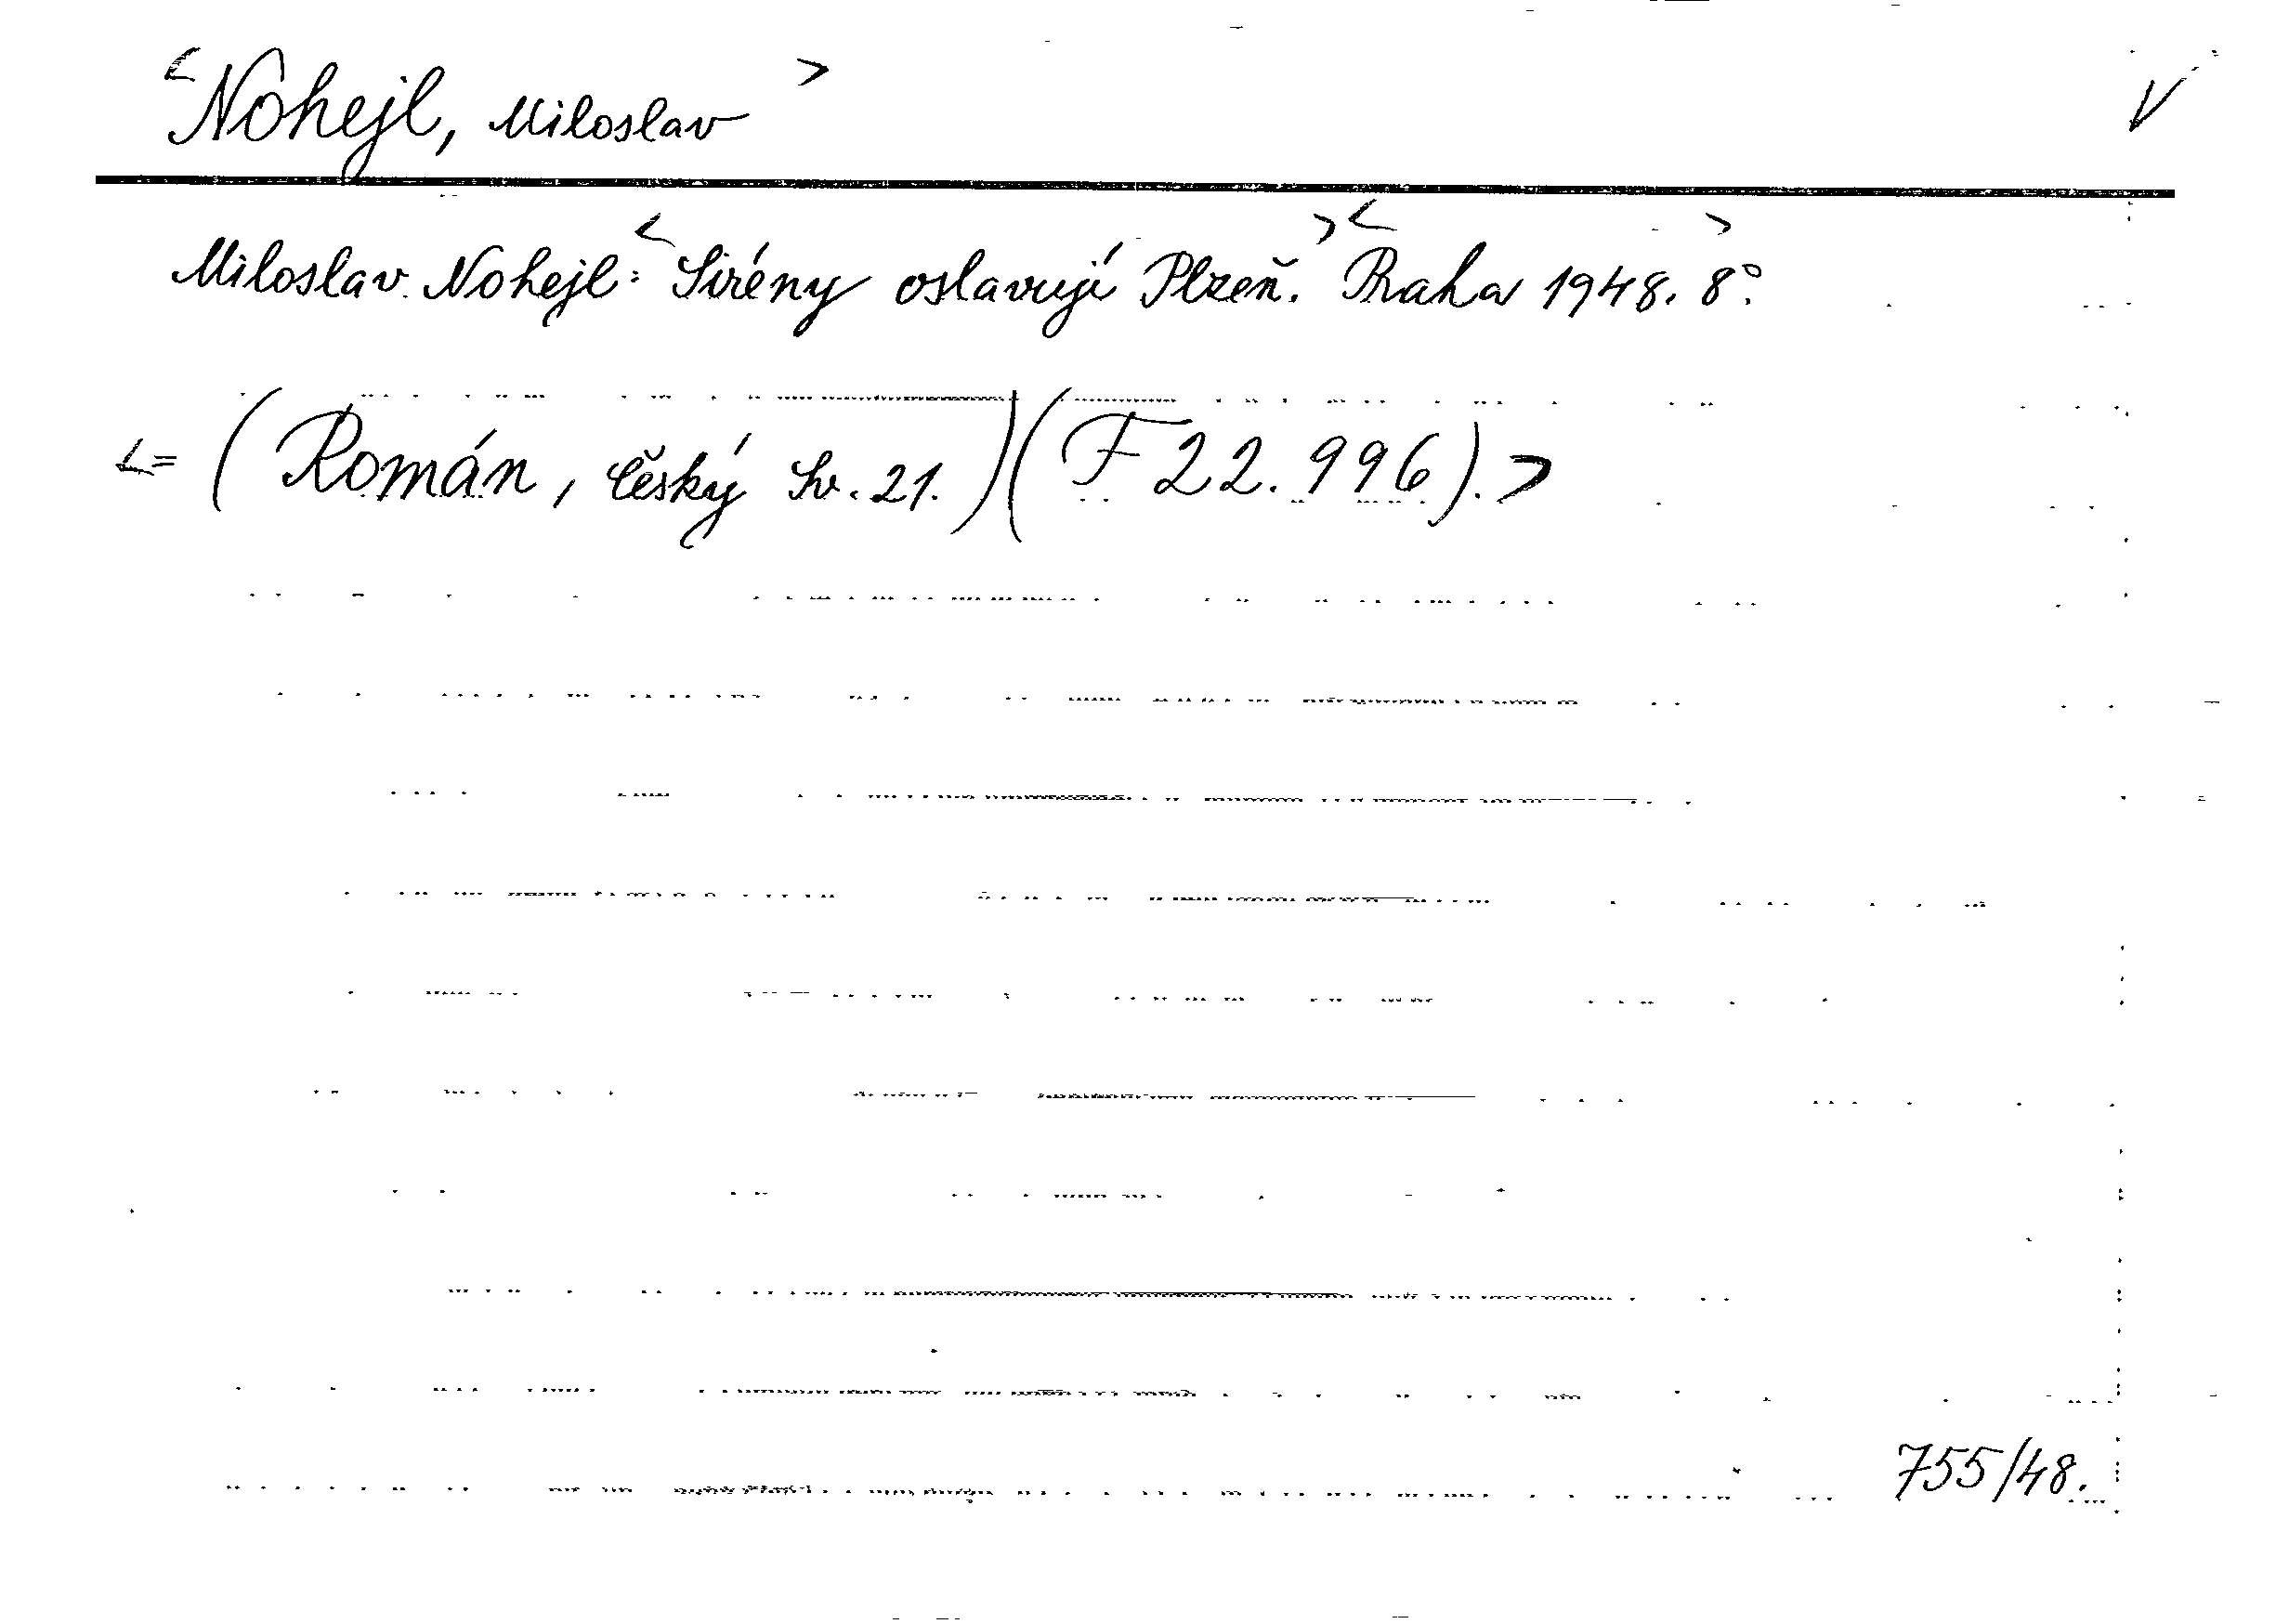 <Nohejl, Miloslav> V
Miloslav Nohejl: <Sirény oslavují Plzeň.> <Praha 1948.> 8°.
<= (Román, český Sv. 21.) (F 22.996).>
755/48.